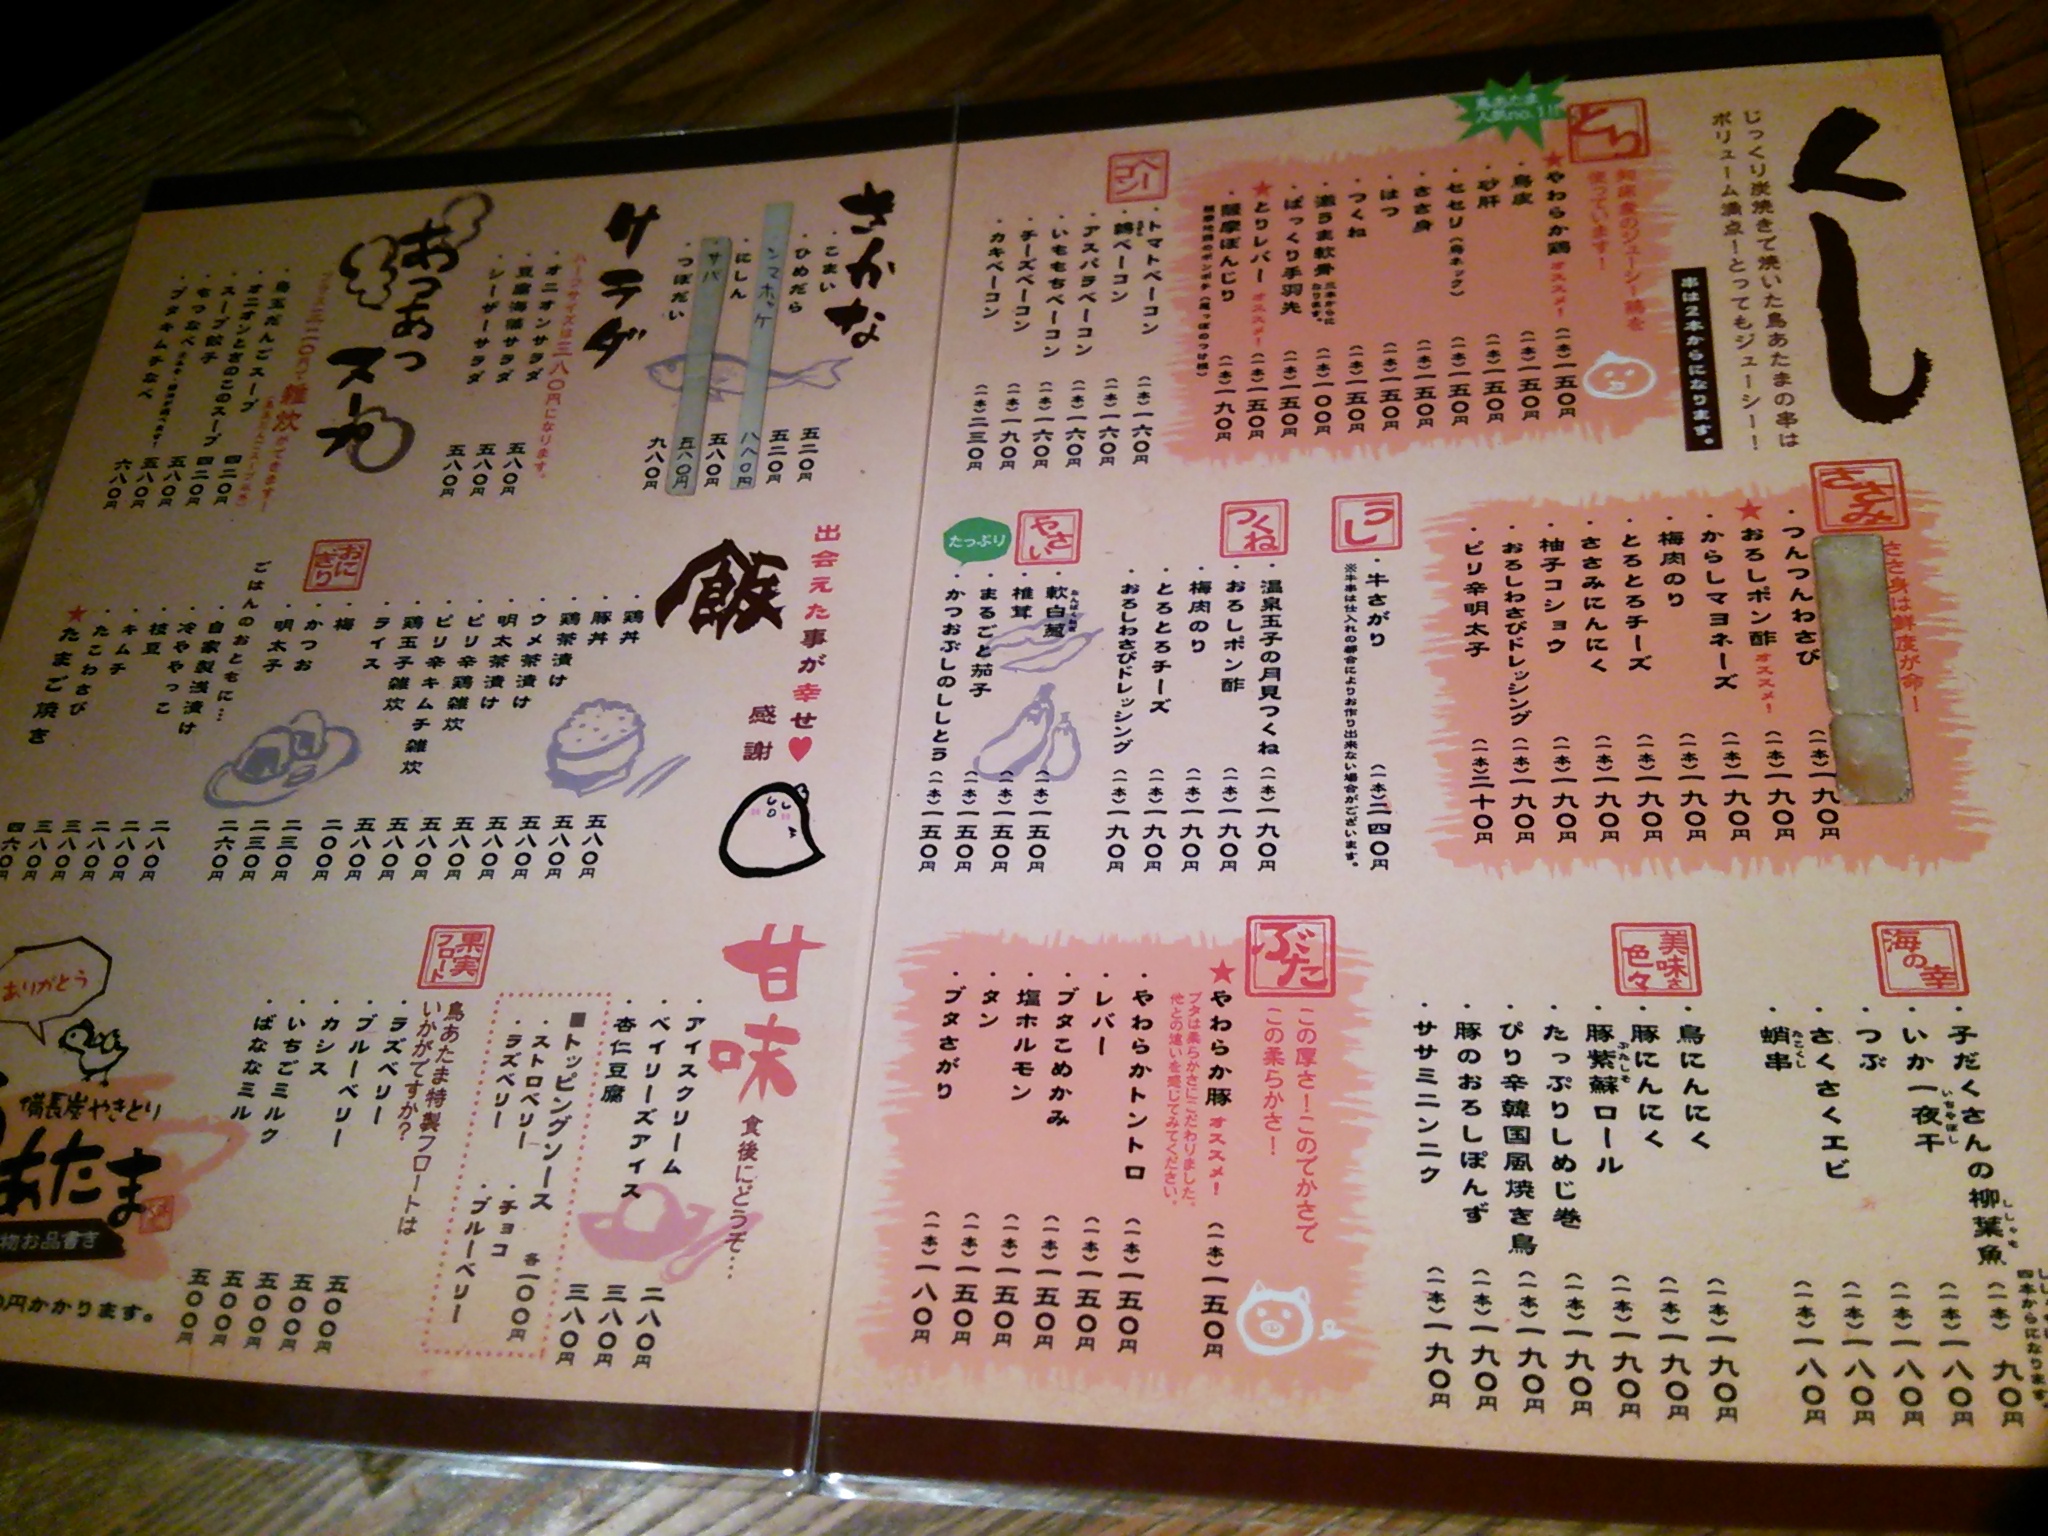 くし
じっくり炭焼きで焼いた鳥あたまの串は
ボリューム満点！とってもジューシー！
串は2本からになります。
とり
鳥あたま
人気no.1!!
知床産のジューシー鶏を
使っています！
★やわらか鶏 オススメ！ （一本）一五〇円
・鳥皮 （一本）一五〇円
・砂肝 （一本）一五〇円
・セセリ（鳥ネック） （一本）一五〇円
・ささ身 （一本）一五〇円
・はつ （一本）一五〇円
・つくね （一本）一五〇円
・激うま軟骨 三本からになります。 （一本）一〇〇円
・ぱっくり手羽先 （一本）一五〇円
★とりレバー オススメ！ （一本）一五〇円
・薩摩ぼんじり （一本）一九〇円
ベーコン
・トマトベーコン （一本）一六〇円
・鶏ベーコン （一本）一六〇円
・アスパラベーコン （一本）一六〇円
・いももちベーコン （一本）一六〇円
・チーズベーコン （一本）一九〇円
・カキベーコン （一本）二三〇円
ささみ
ささ身は鮮度が命！
・つんつんわさび （一本）一九〇円
★おろしポン酢 オススメ！ （一本）一九〇円
・からしマヨネーズ （一本）一九〇円
・梅肉のり （一本）一九〇円
・とろとろチーズ （一本）一九〇円
・ささみにんにく （一本）一九〇円
・柚子コショウ （一本）一九〇円
・おろしわさびドレッシング （一本）一九〇円
・ピリ辛明太子 （一本）二一〇円
うし
・牛さがり （一本）二四〇円
※牛串は仕入れの都合によりお作り出来ない場合がございます。
つくね
・温泉玉子の月見つくね （一本）一九〇円
・おろしポン酢 （一本）一九〇円
・梅肉のり （一本）一九〇円
・とろとろチーズ （一本）一九〇円
・おろしわさびドレッシング （一本）一九〇円
やさい
たっぷり
・軟白葱 （一本）一五〇円
・椎茸 （一本）一五〇円
・まるごと茄子 （一本）一五〇円
・かつおぶしのししとう （一本）一五〇円
海の幸
・子だくさんの柳葉魚 ししゃも （一本）九〇円
四本からになります。
・いか一夜干 いちやぼし （一本）一八〇円
・つぶ （一本）一八〇円
・さくさくエビ （一本）一八〇円
・蛸串 たこくし （一本）一八〇円
美味さ色々
・鳥にんにく （一本）一九〇円
・豚にんにく （一本）一九〇円
・豚紫蘇ロール ぶたしそ （一本）一九〇円
・たっぷりしめじ巻 （一本）一九〇円
・ぴり辛韓国風焼き鳥 （一本）一九〇円
・豚のおろしぽんず （一本）一九〇円
・ササミニンニク （一本）一九〇円
ぶた
この厚さ！このでかさで
この柔らかさ！
★やわらか豚 オススメ！ （一本）一五〇円
ブタは柔らかさにこだわりました。
他との違いを感じてみてください。
・やわらかトントロ （一本）一五〇円
・レバー （一本）一五〇円
・ブタこめかみ （一本）一五〇円
・塩ホルモン （一本）一五〇円
・タン （一本）一五〇円
・ブタさがり （一本）一八〇円
さかな
・こまい 五二〇円
・ひめだら 五二〇円
シマホッケ 八八〇円
・にしん 五八〇円
サバ 五八〇円
・つぼだい 九八〇円
サラダ
ハーフサイズは三八〇円になります。
・オニオンサラダ 五八〇円
・豆腐海藻サラダ 五八〇円
・シーザーサラダ 五八〇円
あつあつスープ
雑炊ができます！
・鳥玉だんごスープ 四二〇円
・オニオンときのこのスープ 四二〇円
・スープ餃子 五八〇円
・もつ煮込 五八〇円
・ブタキムチ煮込 六八〇円
出会えた事が幸せ♥
感謝
飯
・鶏丼 五八〇円
・豚丼 五八〇円
・鶏茶漬け 五八〇円
・ウメ茶漬け 五八〇円
・明太茶漬け 五八〇円
・ピリ辛鶏雑炊 五八〇円
・ピリ辛キムチ雑炊 五八〇円
・鶏玉子雑炊 五八〇円
・ライス 二〇〇円
おにぎり
・梅 二三〇円
・かつお 二三〇円
・明太子 二六〇円
ごはんのおともに…
・自家製浅漬け 二八〇円
・冷ややっこ 二八〇円
・枝豆 二八〇円
・キムチ 三八〇円
・たこわさび 三八〇円
★たまご焼き 四六〇円
甘味
食後にどうぞ…
・アイスクリーム 二八〇円
・ベイリーズアイス 三八〇円
・杏仁豆腐 三八〇円
■トッピングソース 各一〇〇円
・ストロベリー ・チョコ
・ラズベリー ・ブルーベリー
果実フロート
鳥あたま特製フロートは
いかがですか？
・ラズベリー 五〇〇円
・ブルーベリー 五〇〇円
・カシス 五〇〇円
・いちごミルク 五〇〇円
・ばななミルク 五〇〇円
ありがとう
備長炭やきとり
あたま
物お品書き
〇円かかります。